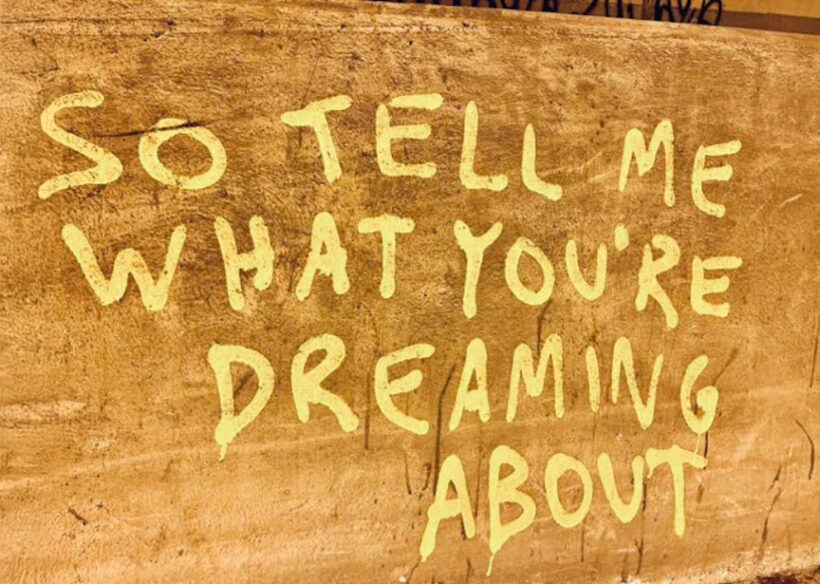 SO TELL ME
WHAT YOU'RE
DREAMING
ABOUT